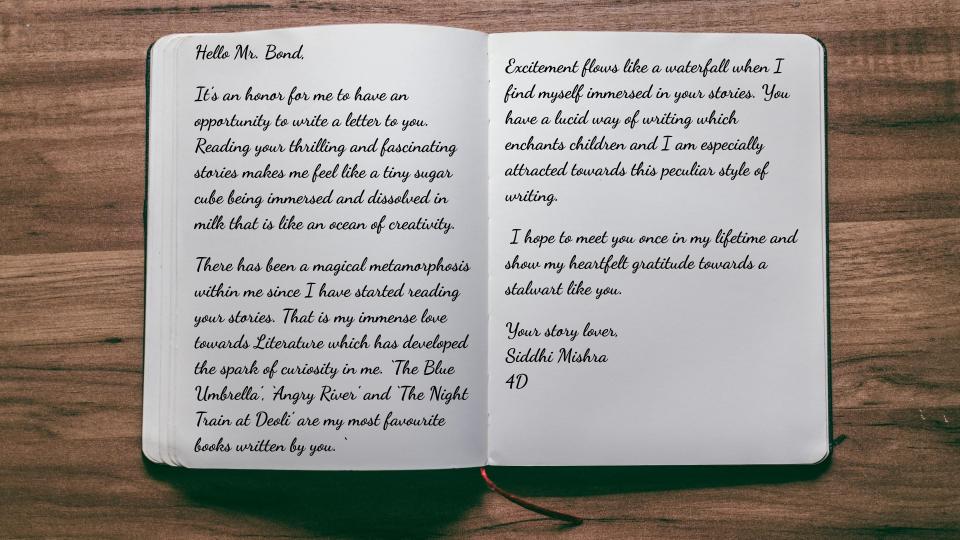 Hello Mr. Bond,
It's an honor for me to have an
opportunity to write a letter to you.
Reading your thrilling and fascinating
stories makes me feel like a tiny sugar
cube being immersed and dissolved in
milk that is like an ocean of creativity.
There has been a magical metamorphosis
within me since I have started reading
your stories. That is my immense love
towards Literature which has developed
the spark of curiosity in me. 'The Blue
Umbrella', 'Angry River' and 'The Night
Train at Deoli' are my most favourite
books written by you. `
Excitement flows like a waterfall when I
find myself immersed in your stories. You
have a lucid way of writing which
enchants children and I am especially
attracted towards this peculiar style of
writing.
I hope to meet you once in my lifetime and
show my heartfelt gratitude towards a
stalwart like you.
Your story lover,
Siddhi Mishra
4D